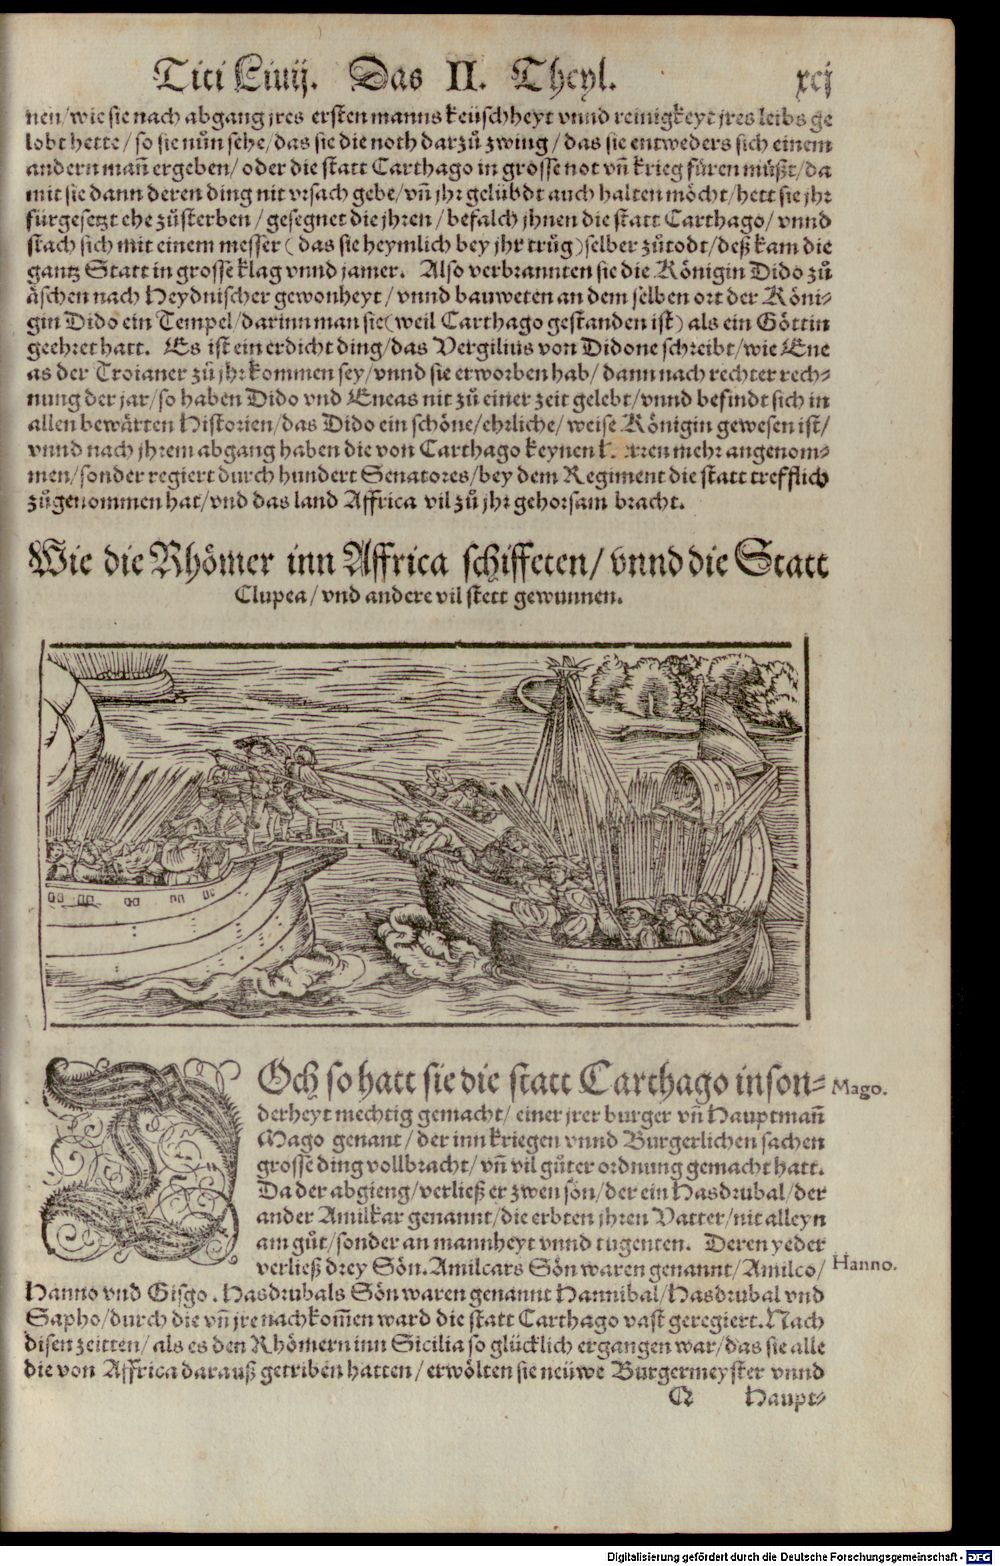 Titi Liuij. Das II. Theyl. xcj
nen/wie sie nach abgang jres ersten manns keüschheyt vnnd reinigkeyt jres leibs ge
lobt hette/ so sie nůn sehe/das sie die noth darzů zwing/das sie entweders sich einem
andern mañ ergeben/oder die statt Carthago in grosse not vñ krieg füren müßt/da
mit sie dann deren ding nit vrsach gebe/vñ jhr gelübdt auch halten möcht/hett sie jhr
fürgesetzt ehe zůsterben/ gesegnet die jhren/befalch jhnen die statt Carthago/ vnnd
stach sich mit einem messer (das sie heymlich bey jhr trůg) selber zůtodt/deß kam die
gantz Statt in grosse klag vnnd jamer. Also verbrannten sie die Königin Dido zů
äschen nach Heydnischer gewonheyt/vnnd bauweten an dem selben ort der Köni-
gin Dido ein Tempel/darinn man sie(weil Carthago gestanden ist) als ein Göttin
geehret hatt. Es ist ein erdicht ding/das Vergilius von Didone schreibt/wie Ene
as der Troianer zů jhr kommen sey/vnnd sie erworben hab/dann nach rechter rech-
nung der jar/so haben Dido vnd Eneas nit zů einer zeit gelebt/vnnd befindt sich in
allen bewärten Historien/das Dido ein schöne/ehrliche/weise Königin gewesen ist/
vnnd nach jhrem abgang haben die von Carthago keynen mehr angenom-
men/sonder regiert durch hundert Senatores/bey dem Regiment die statt trefflich
zůgenommen hat/vnd das land Affrica vil zů jhr gehorsam bracht.
Wie die Rhömer inn Affrica schiffeten/ vnnd die Statt
Clupea/vnd andere vil stett gewunnen.
DOch so hatt sie die statt Carthago inson- Mago.
derheyt mechtig gemacht/ einer jrer burger vñ Hauptmañ
Mago genant/der inn kriegen vnnd Burgerlichen sachen
grosse ding vollbracht/vñ vil gůter ordnung gemacht hatt.
Da der abgieng/verließ er zwen sön/der ein Hasdrubal/der
ander Amilkar genannt/die erbten jhren Vatter/nit alleyn
am gůt/sonder an mannheyt vnnd tugenten. Deren yeder
verließ drey Sön. Amilcars Sön waren genannt/Amilco/ Hanno.
Hanno vnd Gisgo. Hasdrubals Sön waren genannt Hannibal/Hasdrubal vnd
Sapho/durch die vñ jre nachkom̃en ward die statt Carthago vast geregiert. Nach
disen zeitten/als es den Rhömern inn Sicilia so glücklich ergangen war/das sie alle
die von Affrica darauß getriben hatten/erwölten sie neüwe Burgermeyster vnnd
Q Haupt-
Digitalisierung gefördert durch die Deutsche Forschungsgemeinschaft - DFG